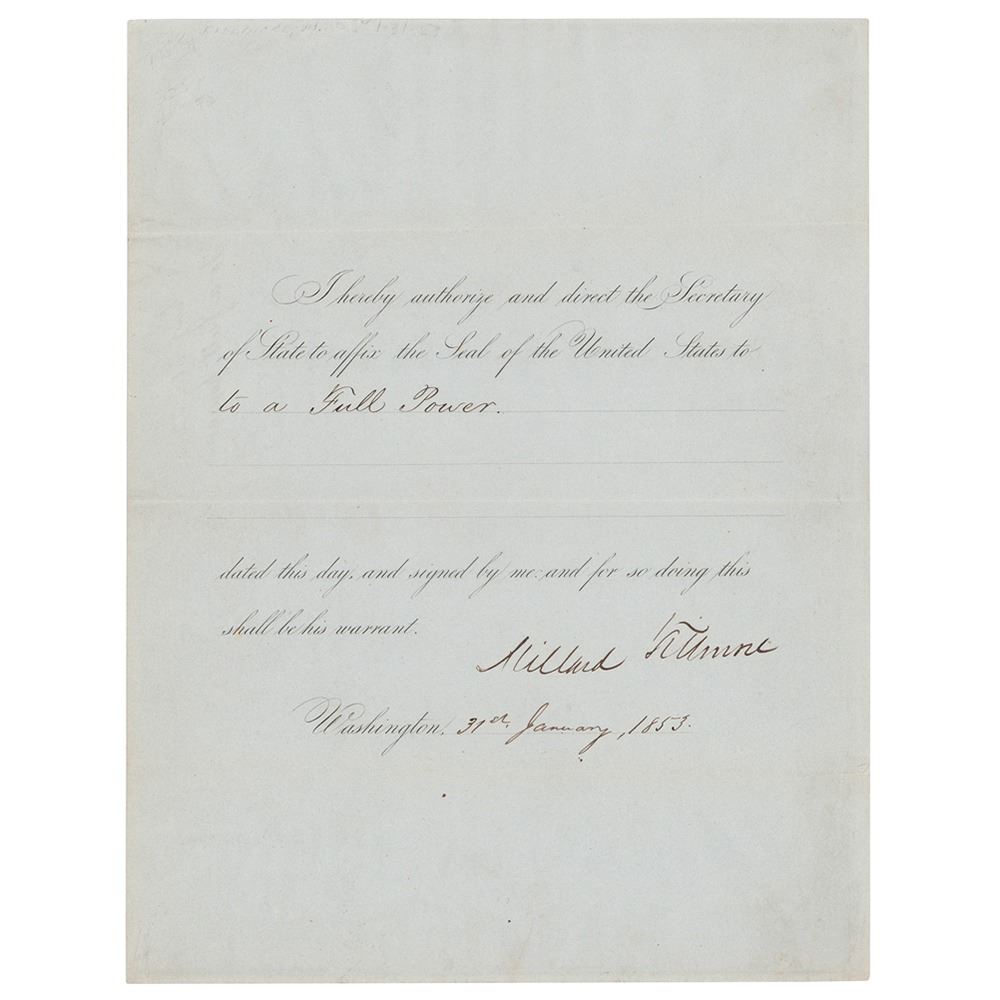 I hereby authorize and direct the Secretary
of State to affix the Seal of the United States to
to a Full Power.
dated this day, and signed by me: and for so doing this
shall be his warrant.
Millard Fillmore
Washington, 31st. January, 1853.